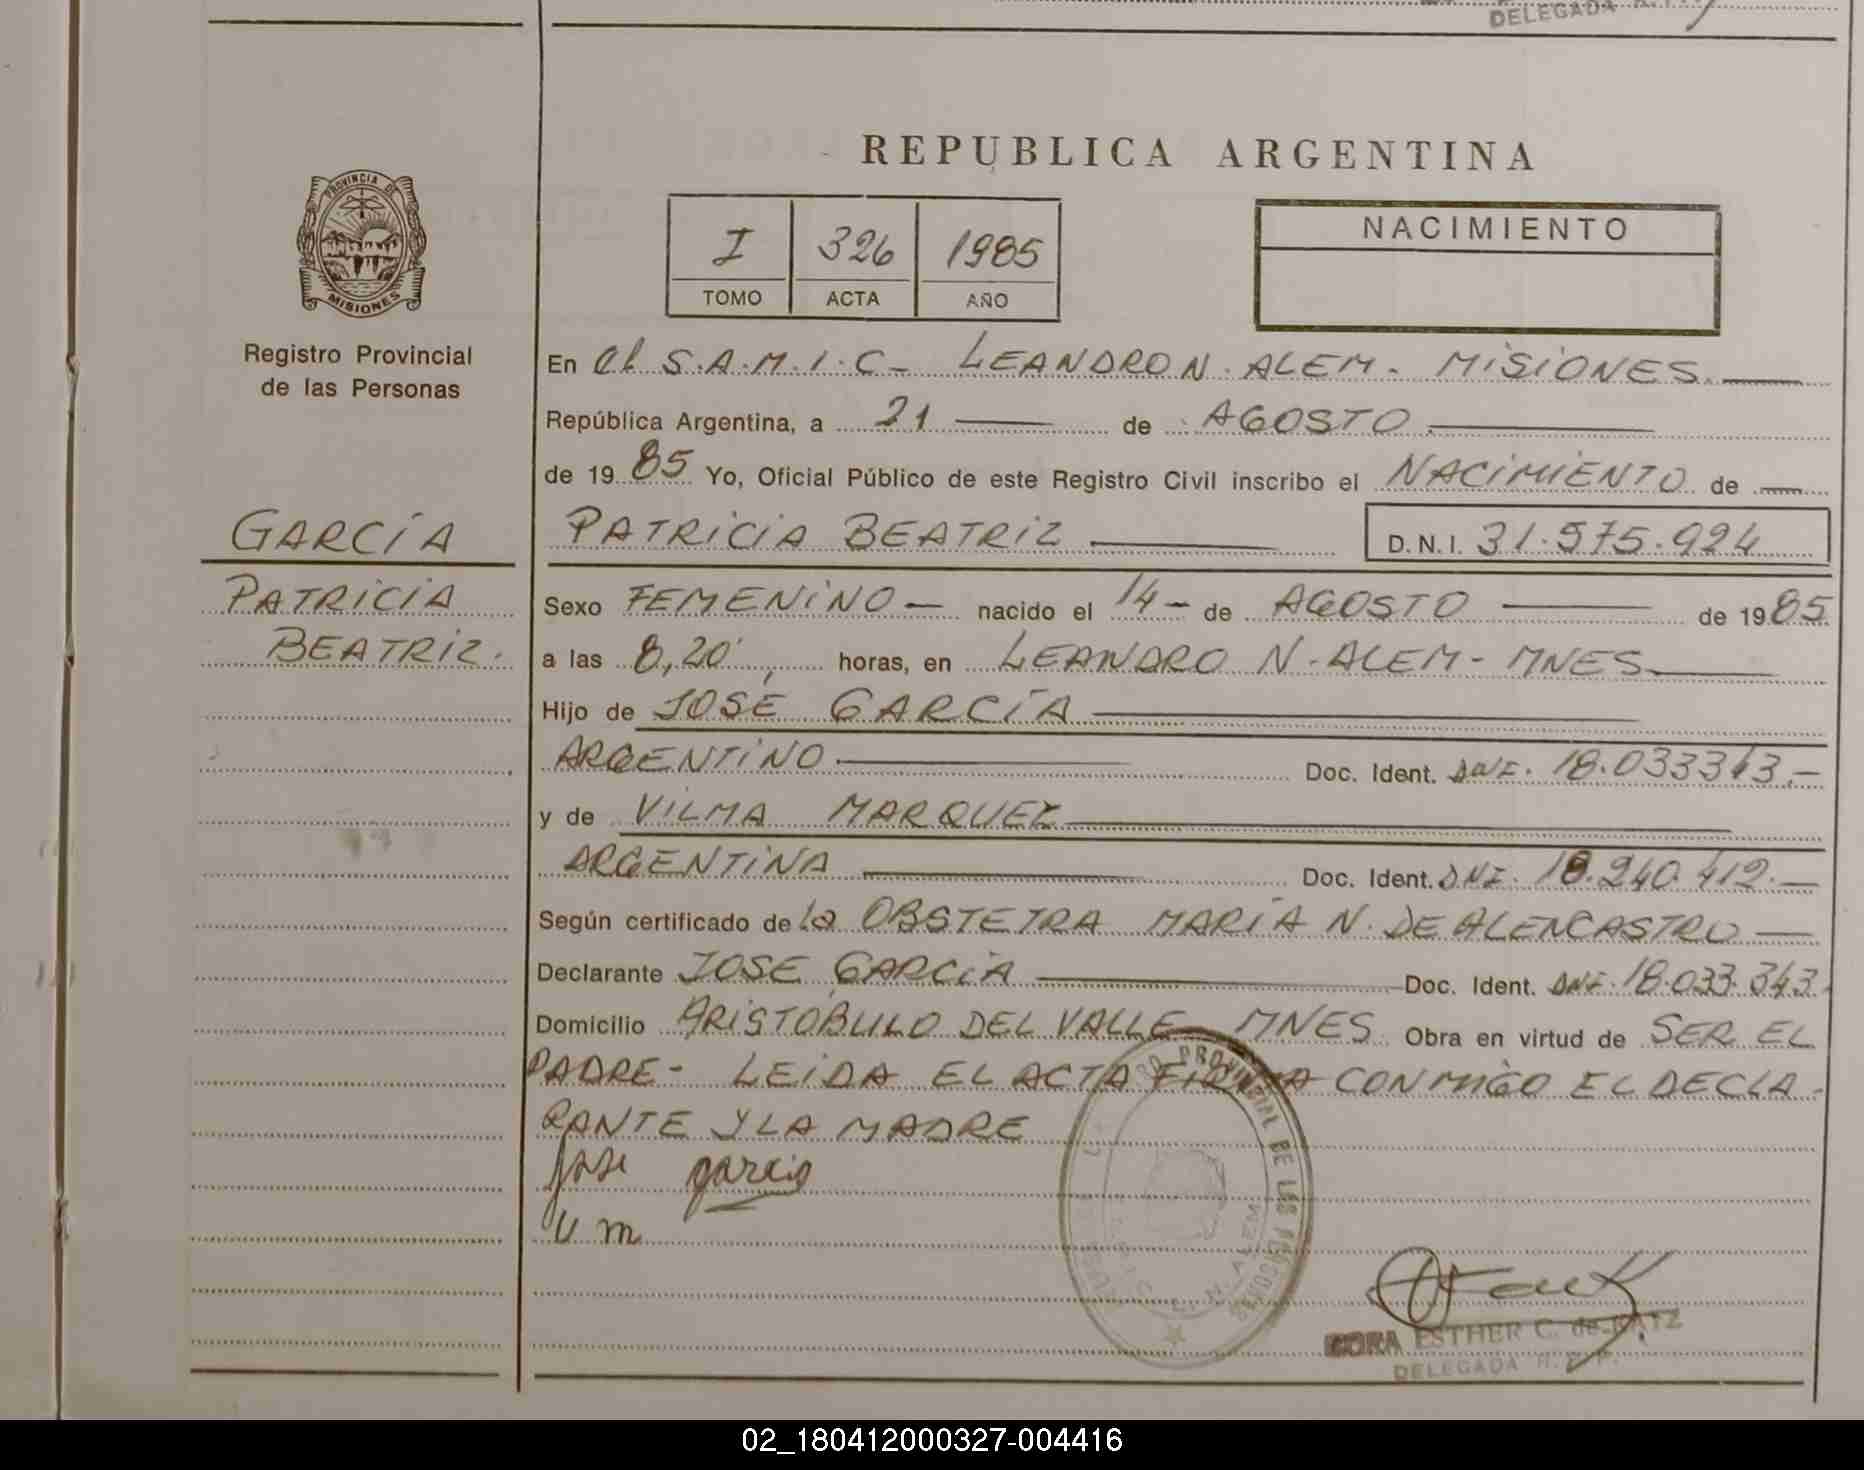 DELEGADA
REPUBLICA ARGENTINA
PROVINCIA DE
MISIONES
Registro Provincial
de las Personas
I 326 1985
TOMO ACTA AÑO
NACIMIENTO
En el S.A.M.I.C- LEANDRO N. ALEM. MISIONES.
República Argentina, a 21 de AGOSTO
de 1985 Yo, Oficial Público de este Registro Civil inscribo el NACIMIENTO de
GARCÍA
PATRICIA
BEATRIZ.
PATRICIA BEATRIZ D.N.I. 31.575.924
Sexo FEMENINO - nacido el 14 - de AGOSTO de 1985
a las 8,20' horas, en LEANDRO N. ALEM - MNES
Hijo de JOSÉ GARCÍA
ARGENTINO Doc. Ident. DNI. 18.033343.-
y de VILMA MARQUEZ
ARGENTINA Doc. Ident. DNI. 18.240.412.-
Según certificado de la OBSTETRA MARÍA N. DE ALENCASTRO -
Declarante JOSE GARCIA Doc. Ident. DNI. 18.033.343.
Domicilio ARISTÓBULO DEL VALLE MNES Obra en virtud de SER EL
PADRE- LEIDA EL ACTA FIRMA CONMIGO EL DECLA-
RANTE Y LA MADRE
jose garcia
V m
PROVINCIAL DE LAS PERSONAS
L. N. ALEM
CORA ESTHER C. de KATZ
DELEGADA R. P. P.
02_180412000327-004416